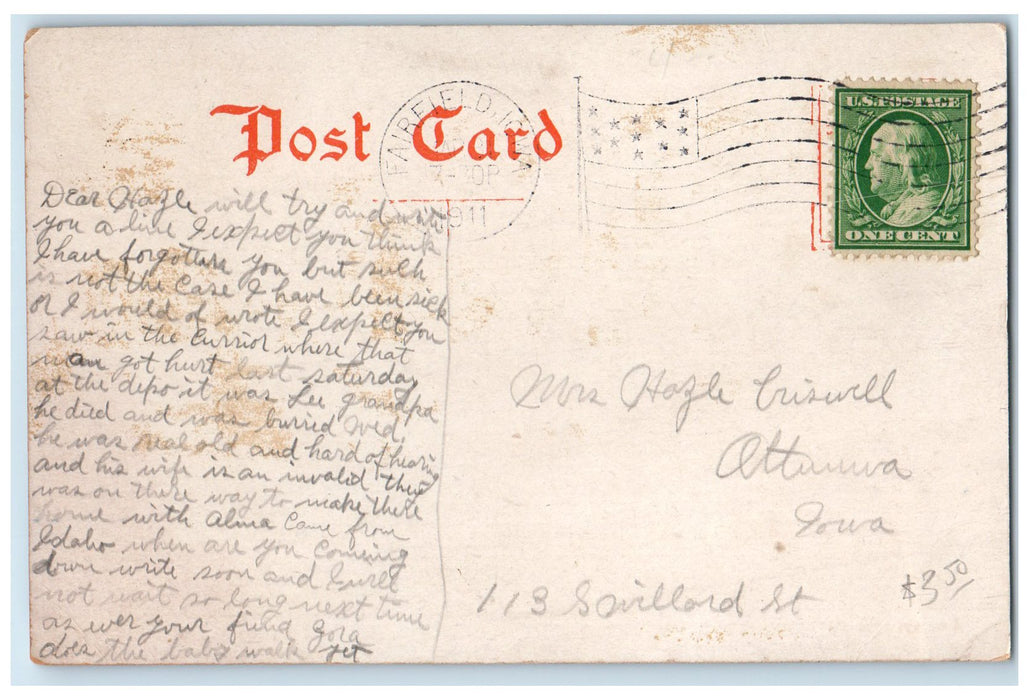 Post Card
FAIRFIELD, IOWA
-30P
1911
U.S. POSTAGE
ONE CENT
Dear Hazle will try and write
you a line I expect you think
I have forgotten you but such
is not the case I have been sick
or I would of wrote I expect you
saw in the Currior where that
man got hurt last saturday
at the depo it was Lee grandpa
he died and was burried Wed.
he was real old and hard of hearing
and his wife is an invalid they
was on there way to make there
home with Alma Came from
Idaho when are you Comeing
down write soon and I will
not wait so long next time
as ever your friend Zora
does the baby walk yet
Mrs Hazle Criswell
Ottumwa
Iowa
113 S Willard St
$3.50